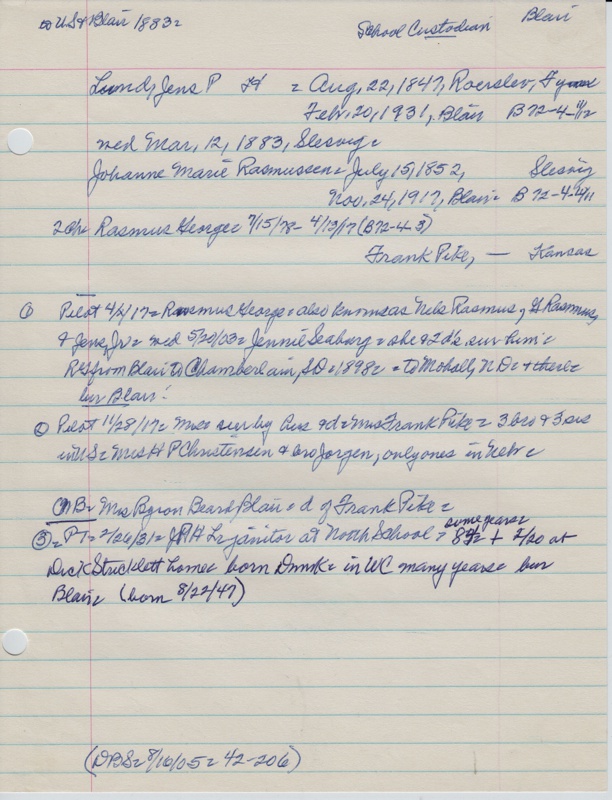 to US & Blair 1883 =
School Custodian
Blair
Lund, Jens P H = Aug, 22, 1847, Roerslev, Fyn
Feb, 20, 1931, Blair B 72-4-
wed Mar, 12, 1883, Slesvig =
Johanne Marie Rasmussen = July 15, 1852, Slesvig
Nov, 24, 1917, Blair = B 72-4-
2 ch = Rasmus George = 7/15/78 - 4/ /17 (B72-4-3)
Frank Pike, — Kansas
① Pilot 4/ /17 = Rasmus George = also known as Nels Rasmus,
& Jens, Jr = wed 5/20/03 = Jennie Seaburg = she & 2 d's sur him =
R G from Blair to Chamberlain, SD = 1898 = to Mohall, ND = & there =
bur Blair =
② Pilot 11/28/17 = sur by hus & d = Mrs Frank Pike = 3 bro & 3 sis
in US = Mrs H P Christensen & bro Jorgen, only ones in Neb =
NB = Mrs Byron Beard Blair = d of Frank Pike =
③ = PT = 2/26/31 = J P H L = janitor at North School = some years = 83 = + 2/20 at
Dick Stricklett home = born Dnmk = in WC many years = bur
Blair = (born 8/22/47)
(DBS = 8/10/05 = 42-206)